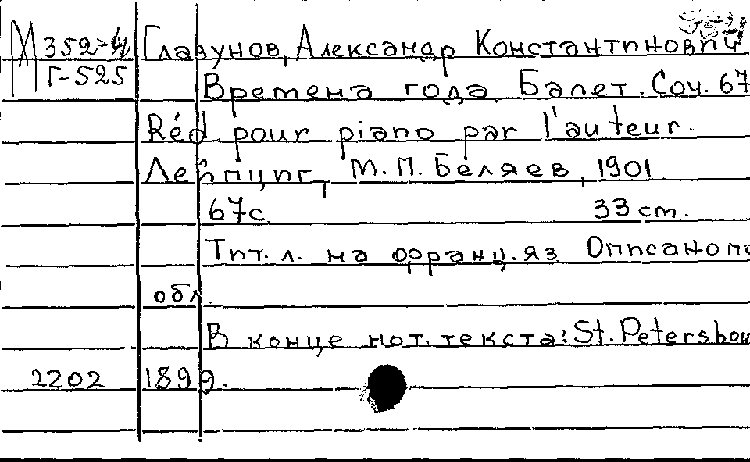 М 352-4 Глазунов, Александр Константинович
Г-525 Времена года. Балет. Соч. 67
Réd pour piano par l'auteur.
Лейпциг, М.П. Беляев, 1901
67с. 33 cm.
Тит. л. на франц. яз Описано по
обл.
В конце нот. текста: St. Petersbou
2202 1899.